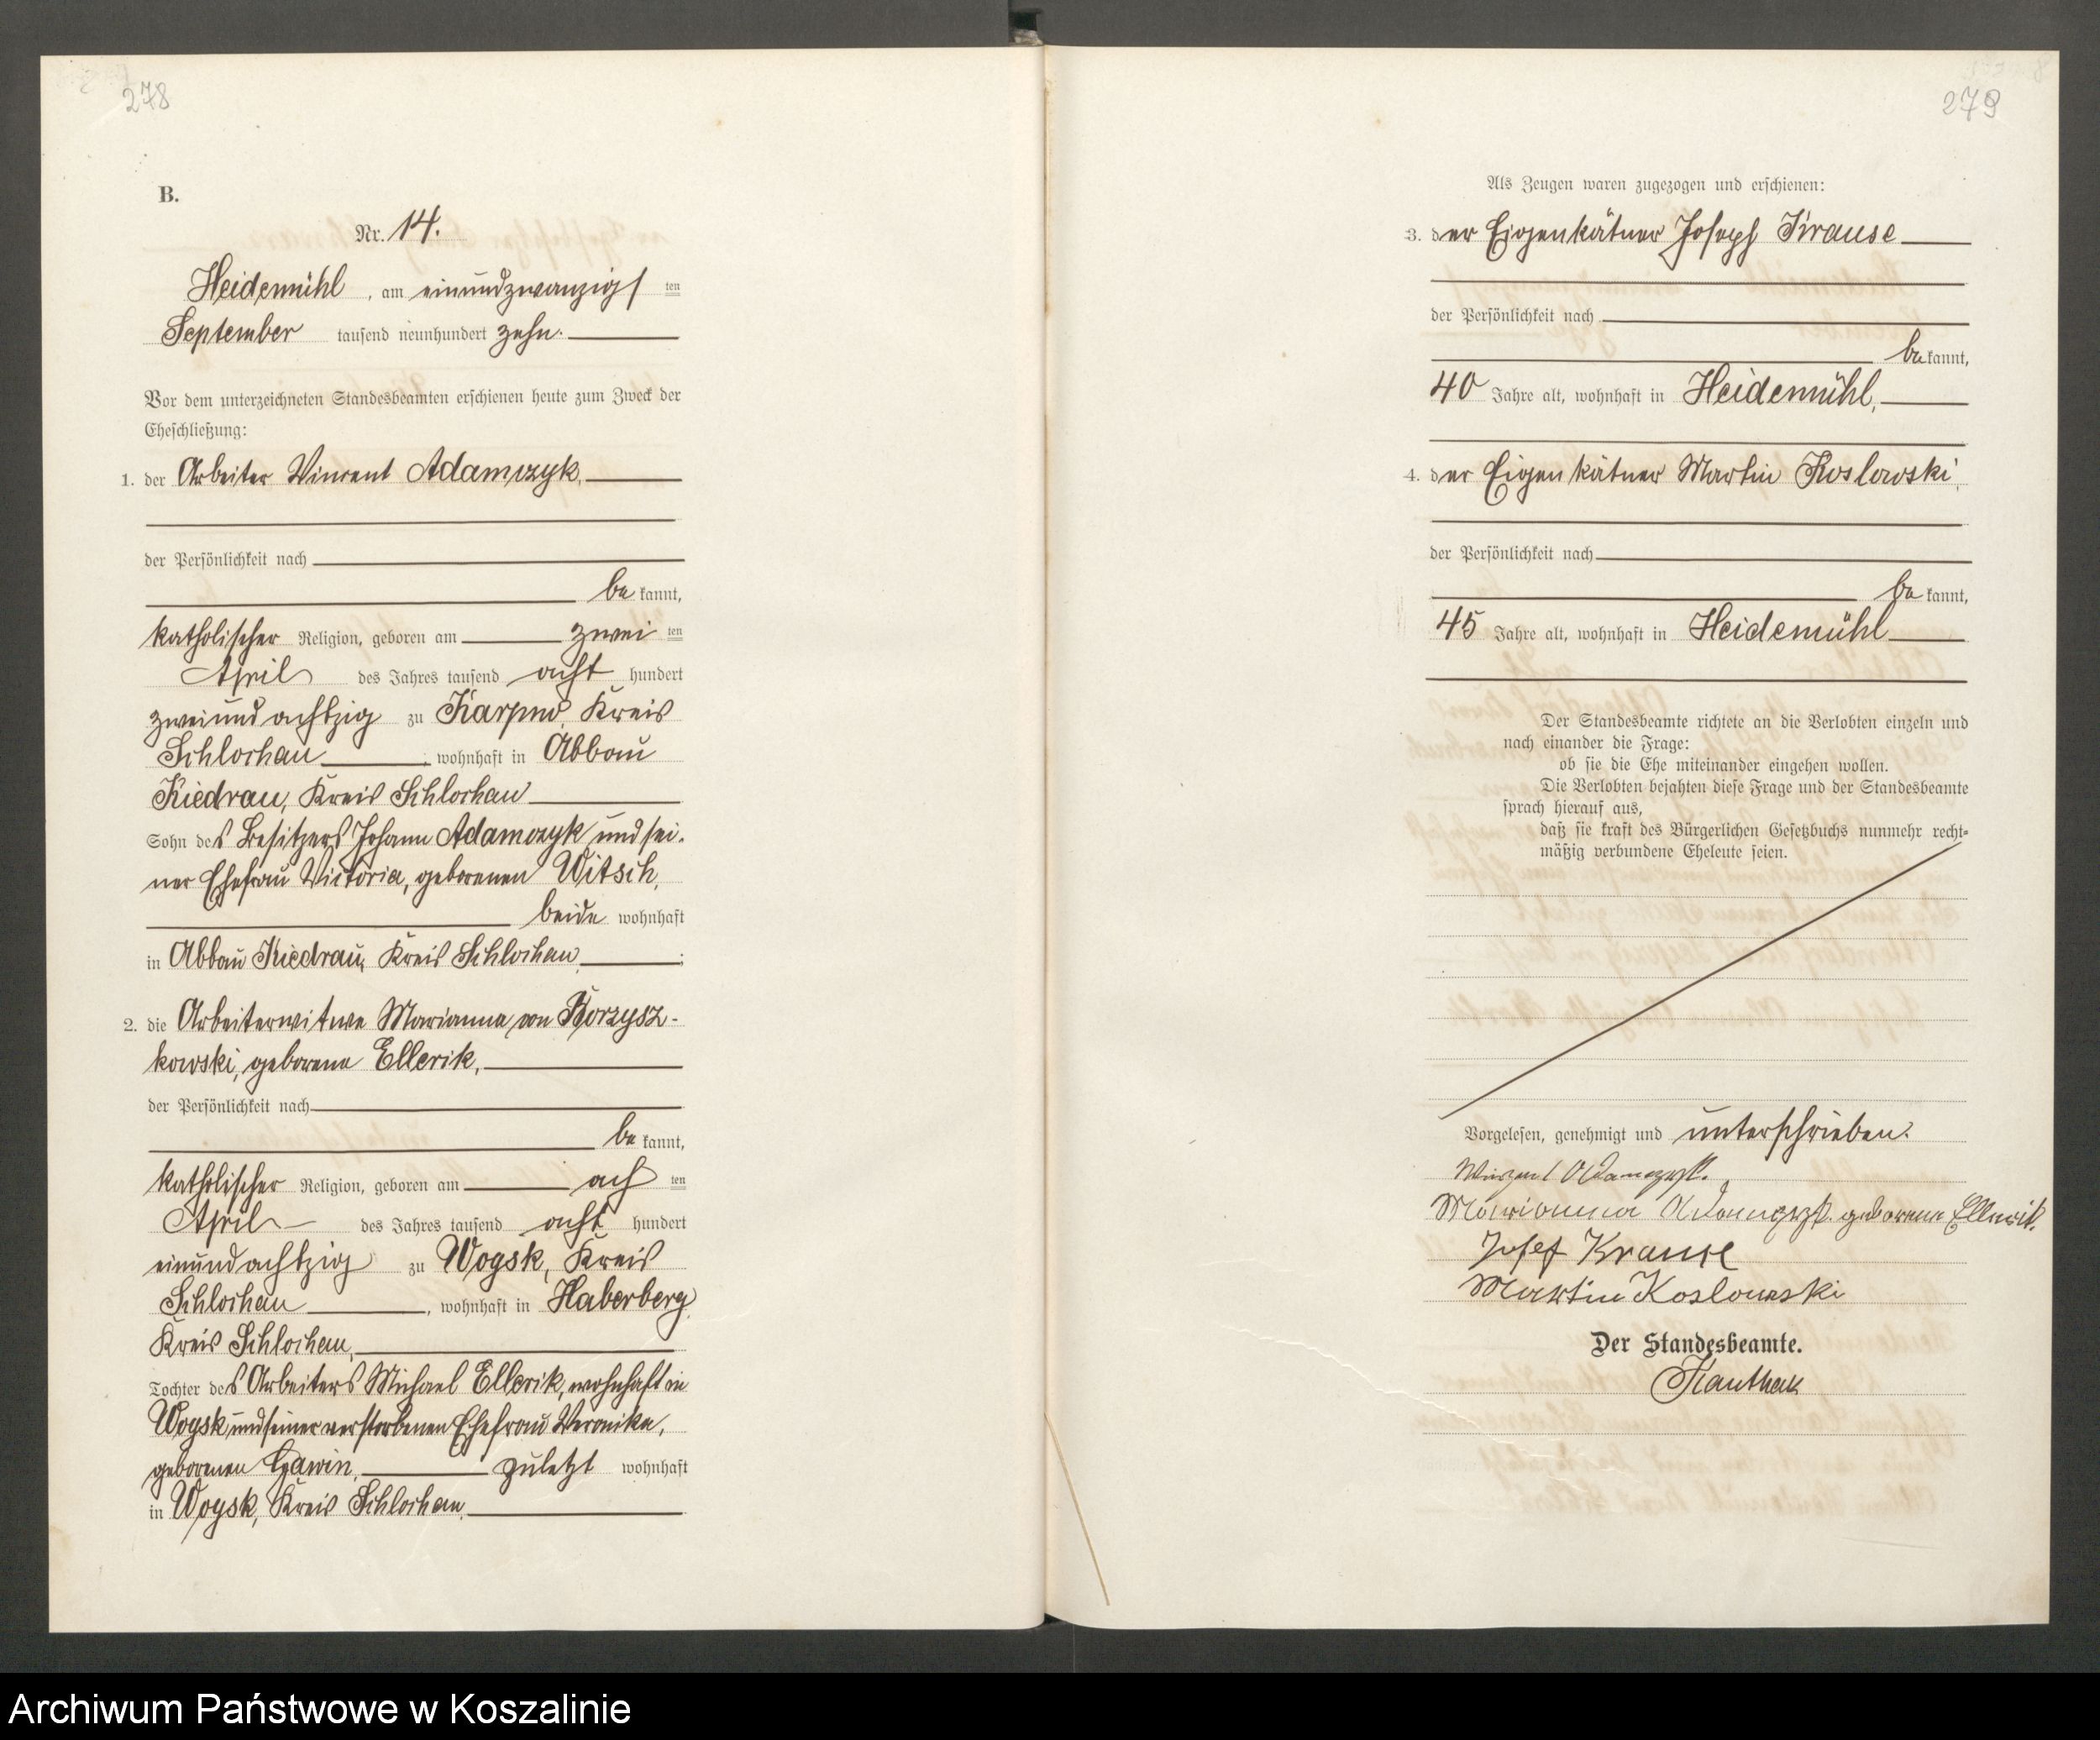 278
B.
Nr. 14.
Heidemühl, am einundzwanzigsten
September tausend neunhundert zehn.
Vor dem unterzeichneten Standesbeamten erschienen heute zum Zweck der
Eheschließung:
1. der Arbeiter Vincent Adamczyk,
der Persönlichkeit nach
bekannt,
katholischer Religion, geboren am zweiten
April des Jahres tausend achthundert
zweiundachtzig zu Karpno, Kreis
Schlochau, wohnhaft in Abbau
Kiedrau, Kreis Schlochau
Sohn des Besitzers Johann Adamczyk und sei-
ner Ehefrau Victoria, geborenen Witsch,
beide wohnhaft
in Abbau Kiedrau, Kreis Schlochau;
2. die Arbeiterwitwe Marianna von Borzysz-
kowski, geborene Ellerik,
der Persönlichkeit nach
bekannt,
katholischer Religion, geboren am achten
April des Jahres tausend achthundert
einundachtzig zu Wogsk, Kreis
Schlochau, wohnhaft in Haberberg,
Kreis Schlochau,
Tochter des Arbeiters Michael Ellerik, wohnhaft in
Wogsk und seiner verstorbenen Ehefrau Veronika,
geborenen Gawin, zuletzt wohnhaft
in Wogsk, Kreis Schlochau.
279
Als Zeugen waren zugezogen und erschienen:
3. der Eigenkätner Joseph Krause
der Persönlichkeit nach
bekannt,
40 Jahre alt, wohnhaft in Heidemühl,
4. der Eigenkätner Martin Koslowski,
der Persönlichkeit nach
bekannt,
45 Jahre alt, wohnhaft in Heidemühl
Der Standesbeamte richtete an die Verlobten einzeln und
nach einander die Frage:
ob sie die Ehe miteinander eingehen wollen.
Die Verlobten bejahten diese Frage und der Standesbeamte
sprach hierauf aus,
daß sie kraft des Bürgerlichen Gesetzbuchs nunmehr recht-
mäßig verbundene Eheleute seien.
Vorgelesen, genehmigt und unterschrieben.
Adamczyk.
Marianna Adamczyk geborene Ellerik.
Josef Krause
Martin Koslowski
Der Standesbeamte.
Archiwum Państwowe w Koszalinie